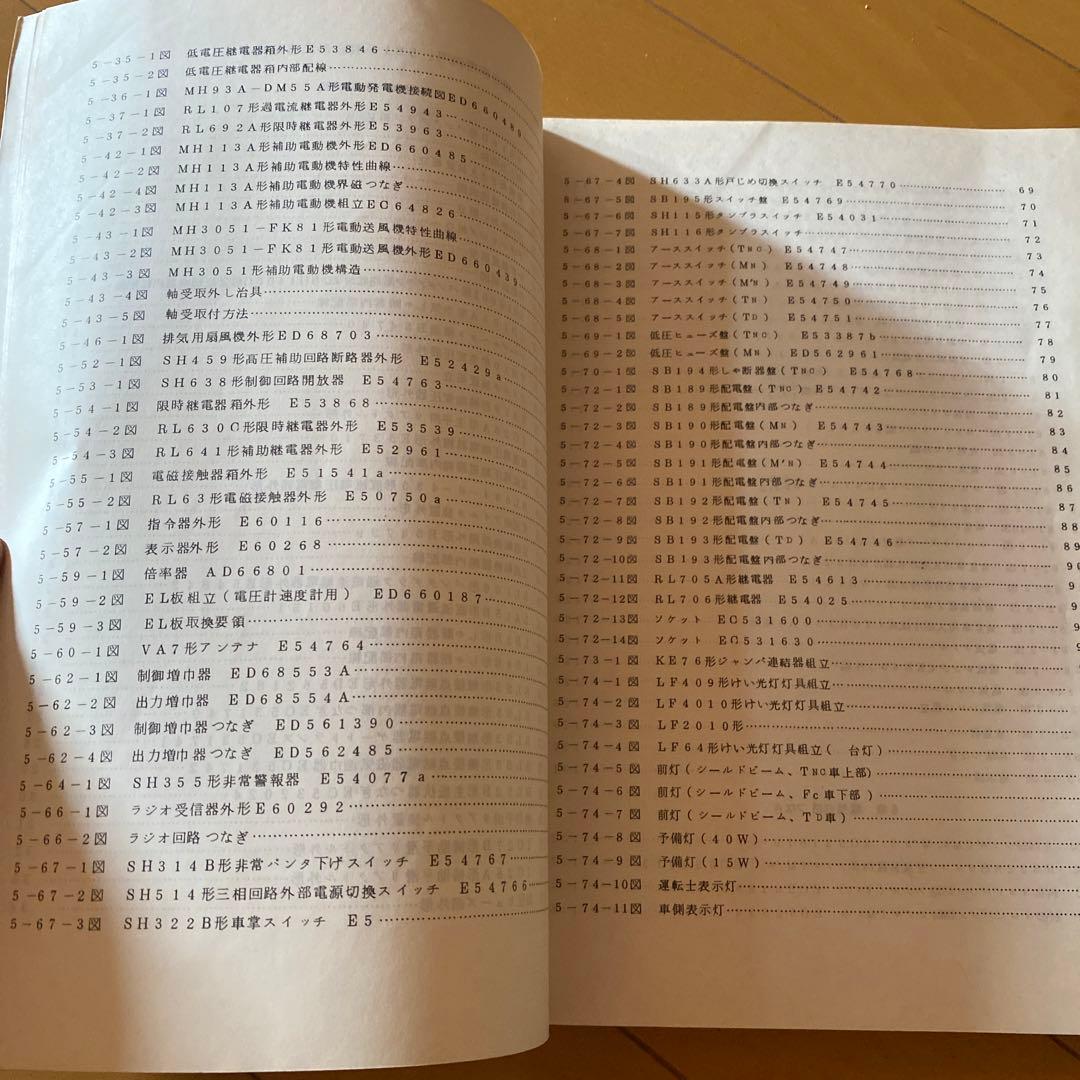 5-35-1図 低電圧継電器箱外形E53846
5-35-2図 低電圧継電器箱内部配線
5-36-1図 MH93A-DM55A形電動発電機接続図ED660489
5-37-1図 RL107形過電流継電器外形E54943
5-37-2図 RL692A形限時継電器外形E53963
5-42-1図 MH113A形補助電動機外形ED660485
5-42-2図 MH113A形補助電動機特性曲線
5-42-4図 MH113A形補助電動機界磁つなぎ
5-42-3図 MH113A形補助電動機組立EC64826
5-43-1図 MH3051-FK81形電動送風機特性曲線
5-43-2図 MH3051-FK81形電動送風機外形ED660439
5-43-3図 MH3051形補助電動機構造
5-43-4図 軸受取外し治具
5-43-5図 軸受取付方法
5-46-1図 排気用扇風機外形ED68703
5-52-1図 SH459形高圧補助回路断路器外形 E52429a
5-53-1図 SH638形制御回路開放器 E54763
5-54-1図 限時継電器箱外形 E53868
5-54-2図 RL630C形限時継電器外形 E53539
5-54-3図 RL641形補助継電器外形 E52961
5-55-1図 電磁接触器箱外形 E51541a
5-55-2図 RL63形電磁接触器外形 E50750a
5-57-1図 指令器外形 E60116
5-57-2図 表示器外形 E60268
5-59-1図 倍率器 AD66801
5-59-2図 EL板組立(電圧計速度計用) ED660187
5-59-3図 EL板取換要領
5-60-1図 VA7形アンテナ E54764
5-62-1図 制御増巾器 ED68553A
5-62-2図 出力増巾器 ED68554A
5-62-3図 制御増巾器つなぎ ED561390
5-62-4図 出力増巾器つなぎ ED562485
5-64-1図 SH355形非常警報器 E54077a
5-66-1図 ラジオ受信器外形E60292
5-66-2図 ラジオ回路つなぎ
5-67-1図 SH314B形非常パンタ下げスイッチ E54767
5-67-2図 SH514形三相回路外部電源切換スイッチ E54766
5-67-3図 SH322B形車掌スイッチ E5
5-67-4図 SH633A形戸じめ切換スイッチ E54770 69
5-67-5図 SB195形スイッチ盤 E54769 70
5-67-6図 SH115形タンブラスイッチ E54031 71
5-67-7図 SH116形タンブラスイッチ 72
5-68-1図 アーススイッチ(TNC) E54747 73
5-68-2図 アーススイッチ(MN) E54748 74
5-68-3図 アーススイッチ(M'N) E54749 75
5-68-4図 アーススイッチ(TN) E54750 76
5-68-5図 アーススイッチ(TD) E54751 77
5-69-1図 低圧ヒューズ盤(TNC) E53387b 78
5-69-2図 低圧ヒューズ盤(MN) ED562961 79
5-70-1図 SB194形しゃ断器盤(TNC) E54768 80
5-72-1図 SB189形配電盤(TNC) E54742 81
5-72-2図 SB189形配電盤内部つなぎ 82
5-72-3図 SB190形配電盤(MN) E54743 83
5-72-4図 SB190形配電盤内部つなぎ 84
5-72-5図 SB191形配電盤(M'N) E54744 85
5-72-6図 SB191形配電盤内部つなぎ 86
5-72-7図 SB192形配電盤(TN) E54745 87
5-72-8図 SB192形配電盤内部つなぎ 88
5-72-9図 SB193形配電盤(TD) E54746 89
5-72-10図 SB193形配電盤内部つなぎ
5-72-11図 RL705A形継電器 E54613
5-72-12図 RL706形継電器 E54025
5-72-13図 ソケット EC531600
5-72-14図 ソケット EC531630
5-73-1図 KE76形ジャンパ連結器組立
5-74-1図 LF409形けい光灯灯具組立
5-74-2図 LF4010形けい光灯灯具組立
5-74-3図 LF2010形
5-74-4図 LF64形けい光灯灯具組立( 台灯)
5-74-5図 前灯(シールドビーム、TNC車上部)
5-74-6図 前灯(シールドビーム、Fc車下部)
5-74-7図 前灯(シールドビーム、TD車)
5-74-8図 予備灯(40W)
5-74-9図 予備灯(15W)
5-74-10図 運転士表示灯
5-74-11図 車側表示灯